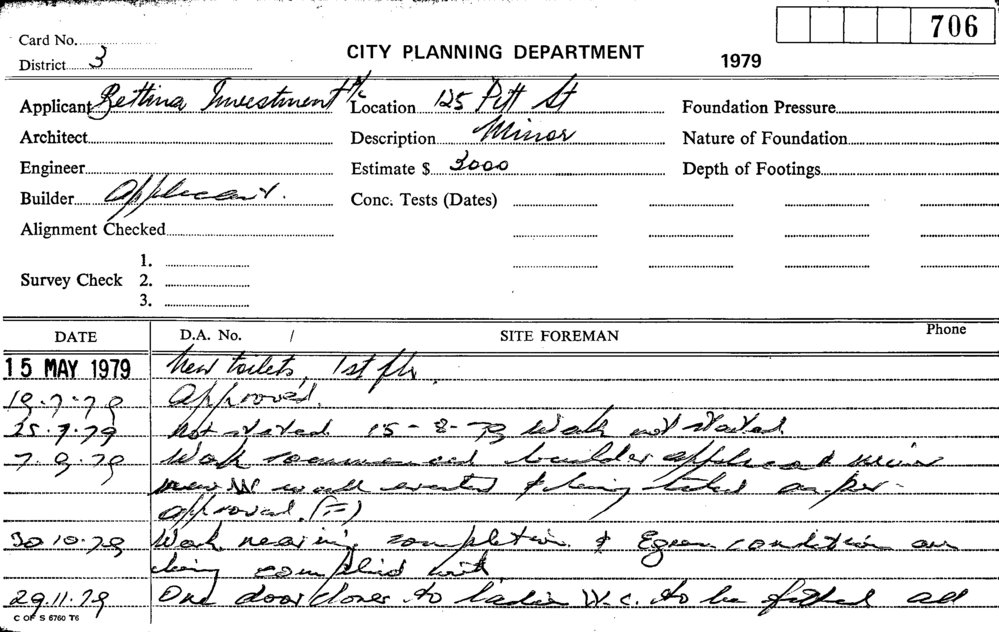 706
Card No.
District 3
CITY PLANNING DEPARTMENT 1979
Applicant Bettina Investment P/L Location 125 Pitt St Foundation Pressure
Architect Description Minor Nature of Foundation
Engineer Estimate $ 3000 Depth of Footings
Builder Applicant. Conc. Tests (Dates)
Alignment Checked
1.
Survey Check 2.
3.
DATE D.A. No. / SITE FOREMAN Phone
15 MAY 1979 New toilets, 1st flr.
19.7.79 Approved.
25.7.79 Not started 15-8-79 Work not started
7.9.79 Work commenced builder applicant
new wall erected & being tiled as per
approval.
30 10.79 Work nearing completion & Egress condition are
being complied with
29.11.79 One door closer to ladies W.C. to be fitted all
C OF S 6760 T6